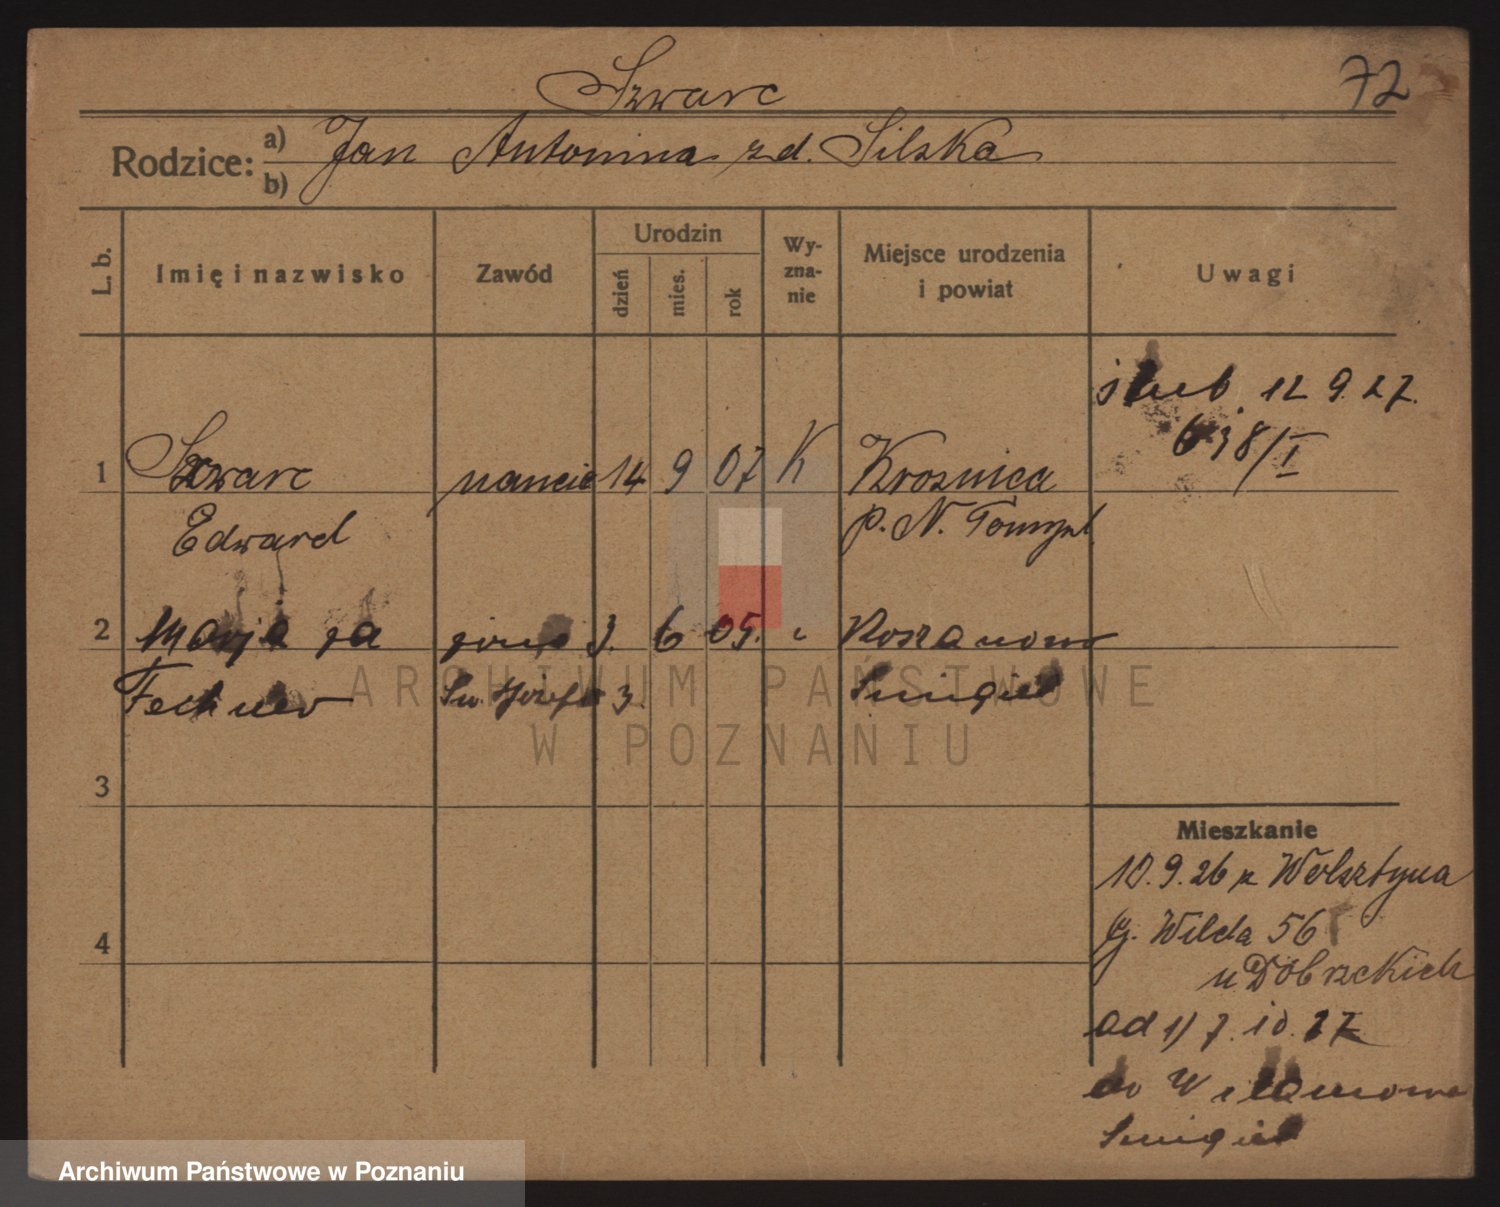 Szwarc
72
Rodzice: a) Jan Antonina z d. Silska
b)
L. b. Imię i nazwisko Zawód Urodzin dzień mies. rok Wyznanie Miejsce urodzenia i powiat Uwagi
ślub 12 9. 27.
638/I
1 Szwarc 14 9 07 K Krosnica
Edward p. N. Tomyśl
2 Marja za 3. 6 05. Roszanowo
Fechner Św. Józefa 3. Śmigiel
3
Mieszkanie
10. 9. 26 z Wolsztyna
G. Wilda 56
4
u Dobrzckich
od 1) 7. 10. 27
do Wilanowo
Śmigiel
ARCHIWUM PAŃSTWOWE
W POZNANIU
Archiwum Państwowe w Poznaniu